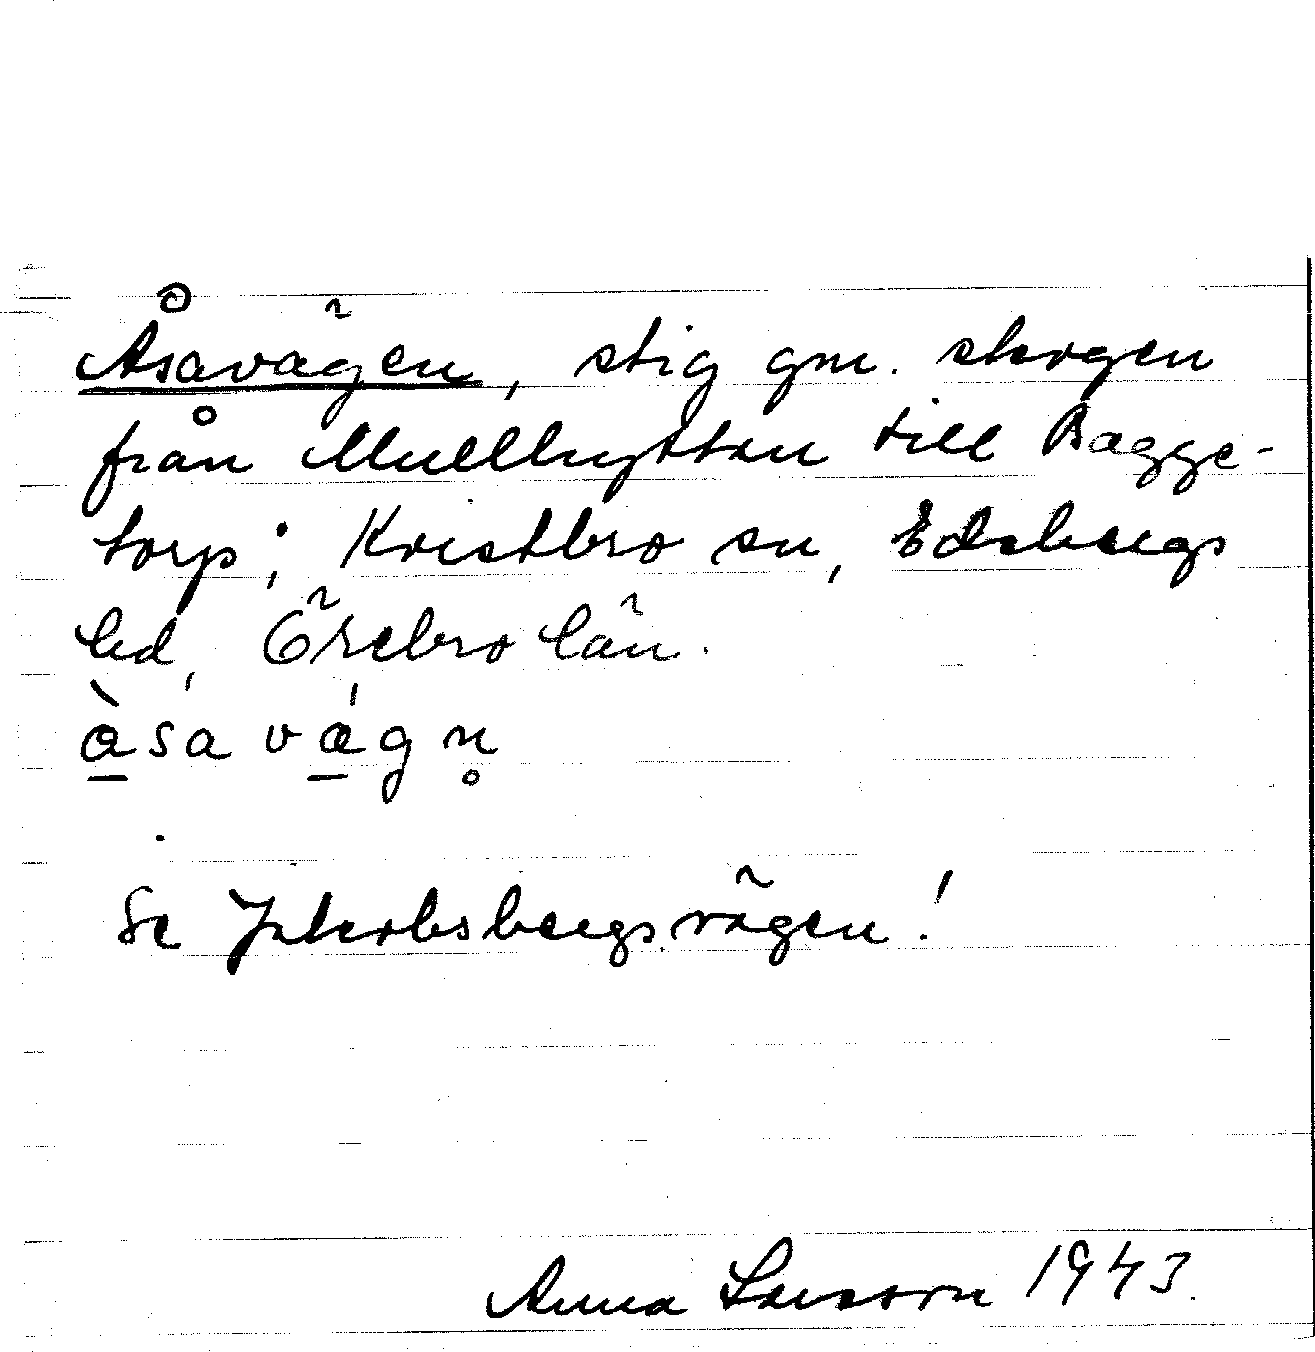 Åsavägen, stig gm. skogen
från Mullhyttan till Bagge-
torp; Kvistbro sn, Edsbergs
hd, Örebro län.
å̀sa vä́gn̥
Se Jakobsbergsvägen!
Anna Larsson 1943.